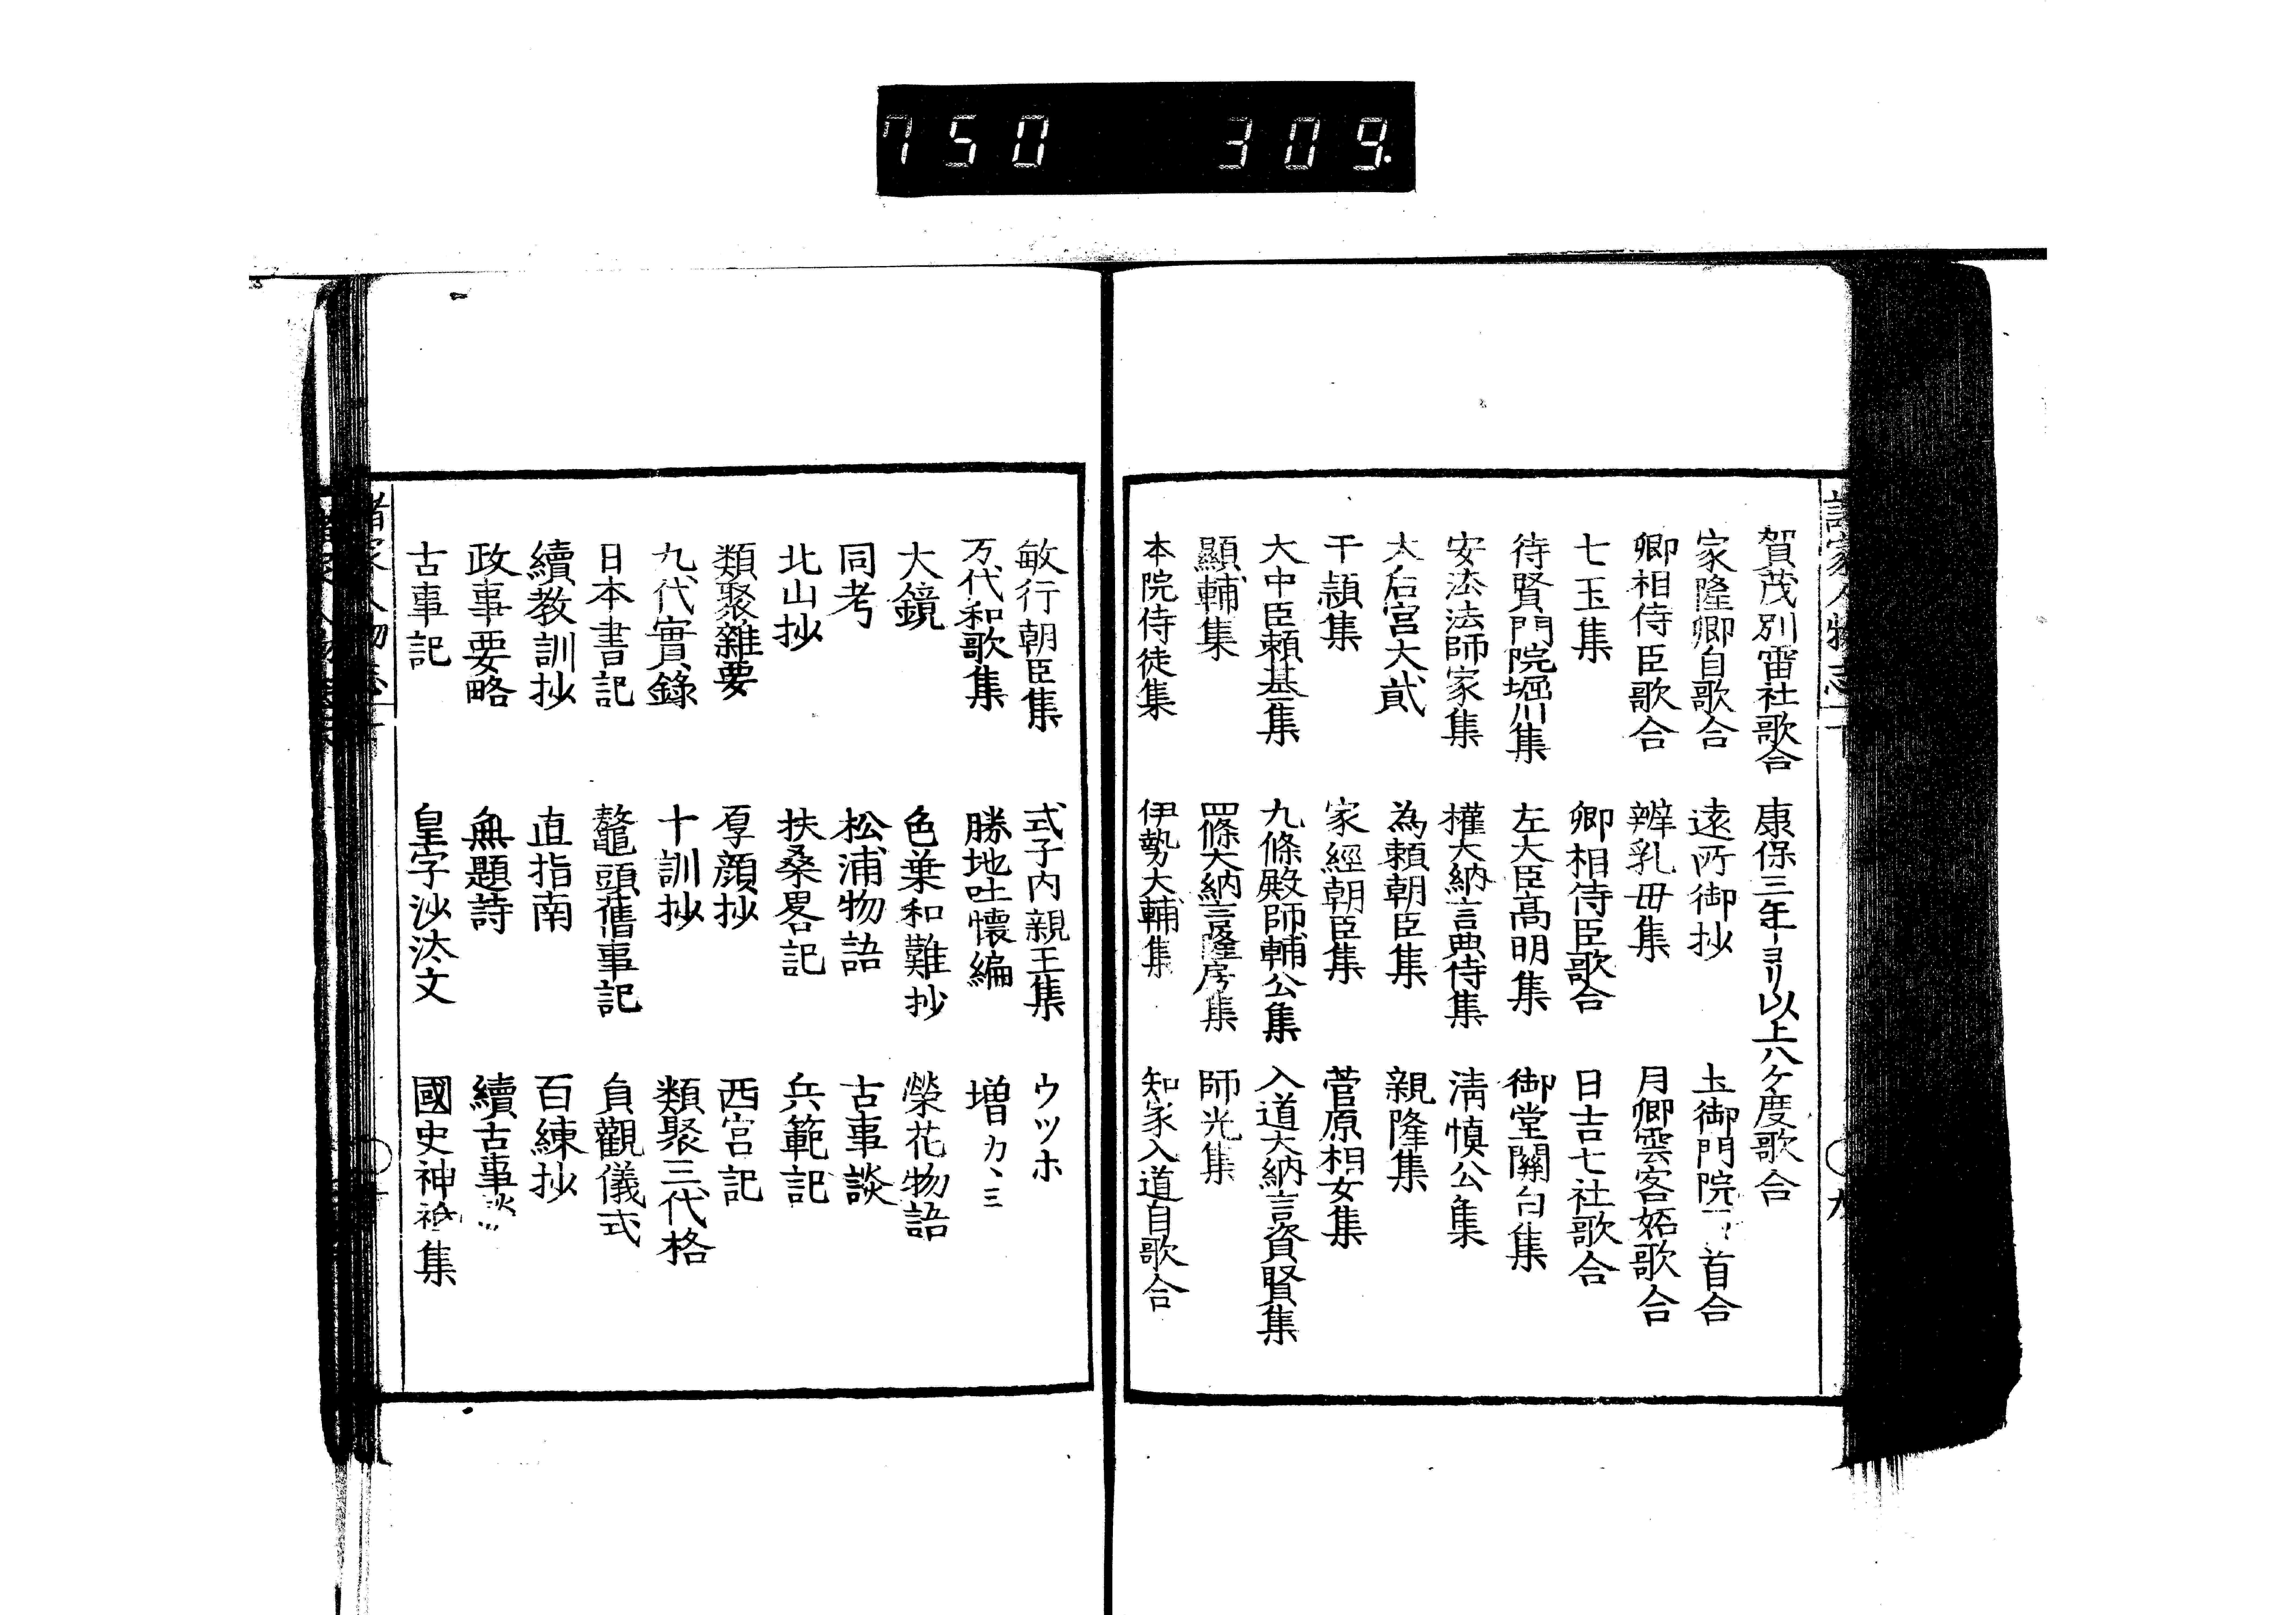 750 309.
賀茂別雷社歌合 康保三年ヨリ以上八ケ度歌合
家隆卿自歌合 遠所御抄 土御門院 首合
卿相侍臣歌合 辨乳母集 月卿雲客妬歌合
七玉集 卿相侍臣歌合 日吉七社歌合
待賢門院堀川集 左大臣髙明集 御堂關白集
安法法師家集 權大納言典侍集 清慎公集
太后宮大貳 為賴朝臣集 親隆集
千頴集 家經朝臣集 菅原相女集
大中臣賴基集 九條殿師輔公集 入道大納言資賢集
顯輔集 四條大納言隆房集 師光集
本院侍徒集 伊勢大輔集 知家入道自歌合
敏行朝臣集 式子内親王集 ウツホ
万代和歌集 勝地吐懷編 増カヽミ
大鏡 色葉和難抄 榮花物語
同考 松浦物語 古事談
北山抄 扶桑畧記 兵範記
類聚雜要 厚顔抄 西宮記
九代實錄 十訓抄 類聚三代格
日本書記 鼇頭舊事記 貞觀儀式
續教訓抄 直指南 百練抄
政事要略 無題詩 續古事談
古事記 皇字沙汰文 國史神祇集